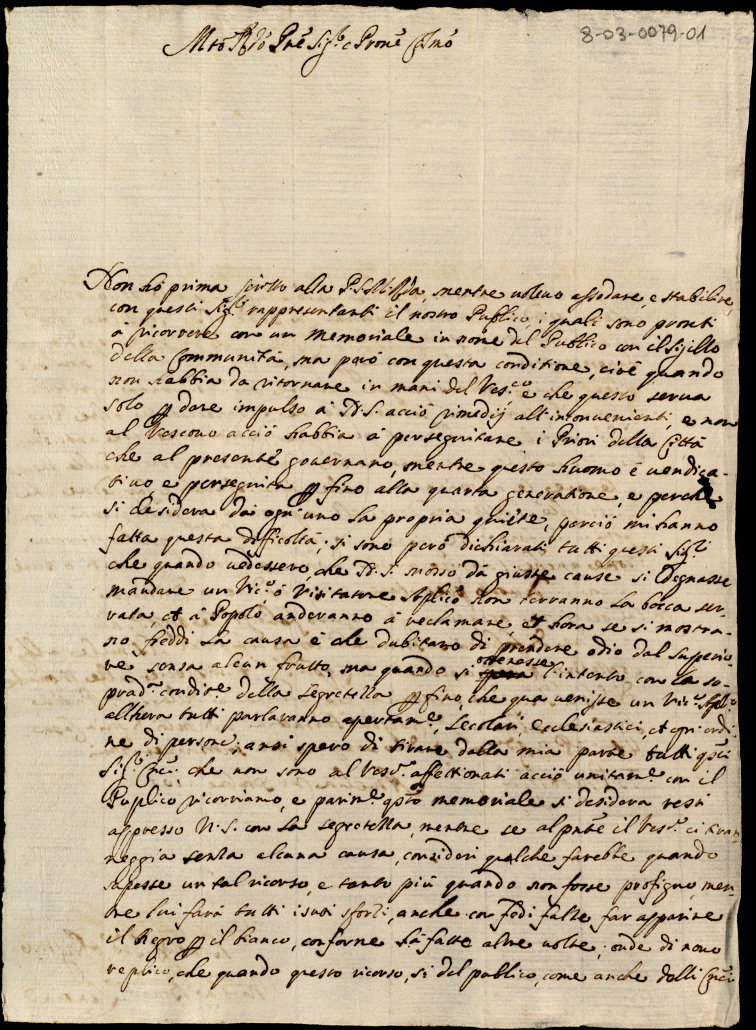 8-03-0079-01
Mto Rdo Pre Sigr e Prone Colmo
Non hò prima scritto alla P.S. M. Rda, mentre uoleuo assodare, e stabilire,
con questi Sigri rappresentanti il nostro Publico, i quali sono pronti
à ricorrere con un memoriale in nome del Publico con il sigillo
della Communità, ma però con questa conditione, cioè quando
non habbia da ritornare in mani del Vesco, e che questo serua
solo p dare impulso à N.S. acciò rimedij all'inconuenienti, e non
al Vescouo acciò habbia à perseguitare i Priori della Città
che al presente gouernano, mentre questo huomo è uendica-
tiuo e perseguita p fino alla quarta generatione, e perche
si desidera da ogn'uno la propria quiete, perciò mi hanno
fatta questa difficoltà; si sono però dichiarati tutti questi Sigri
che quando uedessero, che N.S. mosso da giuste cause si degnasse
mandare un Vico ò Visitatore Aplico non terranno la bocca ser-
rata, et à Popolo anderanno à reclamare, et hora se si mostra-
no freddi la causa è che dubitano di prendere odio dal superio-
re senza alcun frutto, ma quando si ottenesse l'intento con la so-
pradta condite della segretella p fino, che qua uenisse un Vico Aplo
allhora tutti parlaranno apertamte, secolari, ecclesiastici, et ogni ordi-
ne di persone; anzi spero di tirare dalla mia parte tutti qsti
Sigri Cnci, che non sono al Vesco affettionati acciò unitamte con il
Puplico ricorriamo, e parimte qsto memoriale si desidera resti
appresso N.S. con la segretella, mentre se al pnte il Vesco ci tiran
neggia senza alcuna causa, consideri quel che farebbe quando
sapesse un tal ricorso, e tanto più quando non fosse profiguo, men-
tre lui farà tutti i suoi sforzi, anche con fedi false far apparire
il negro p il bianco, conforme hà fatto altre uolte; onde di nouo
replico, che quando questo ricorso, sì del publico, come anche delli Cnci